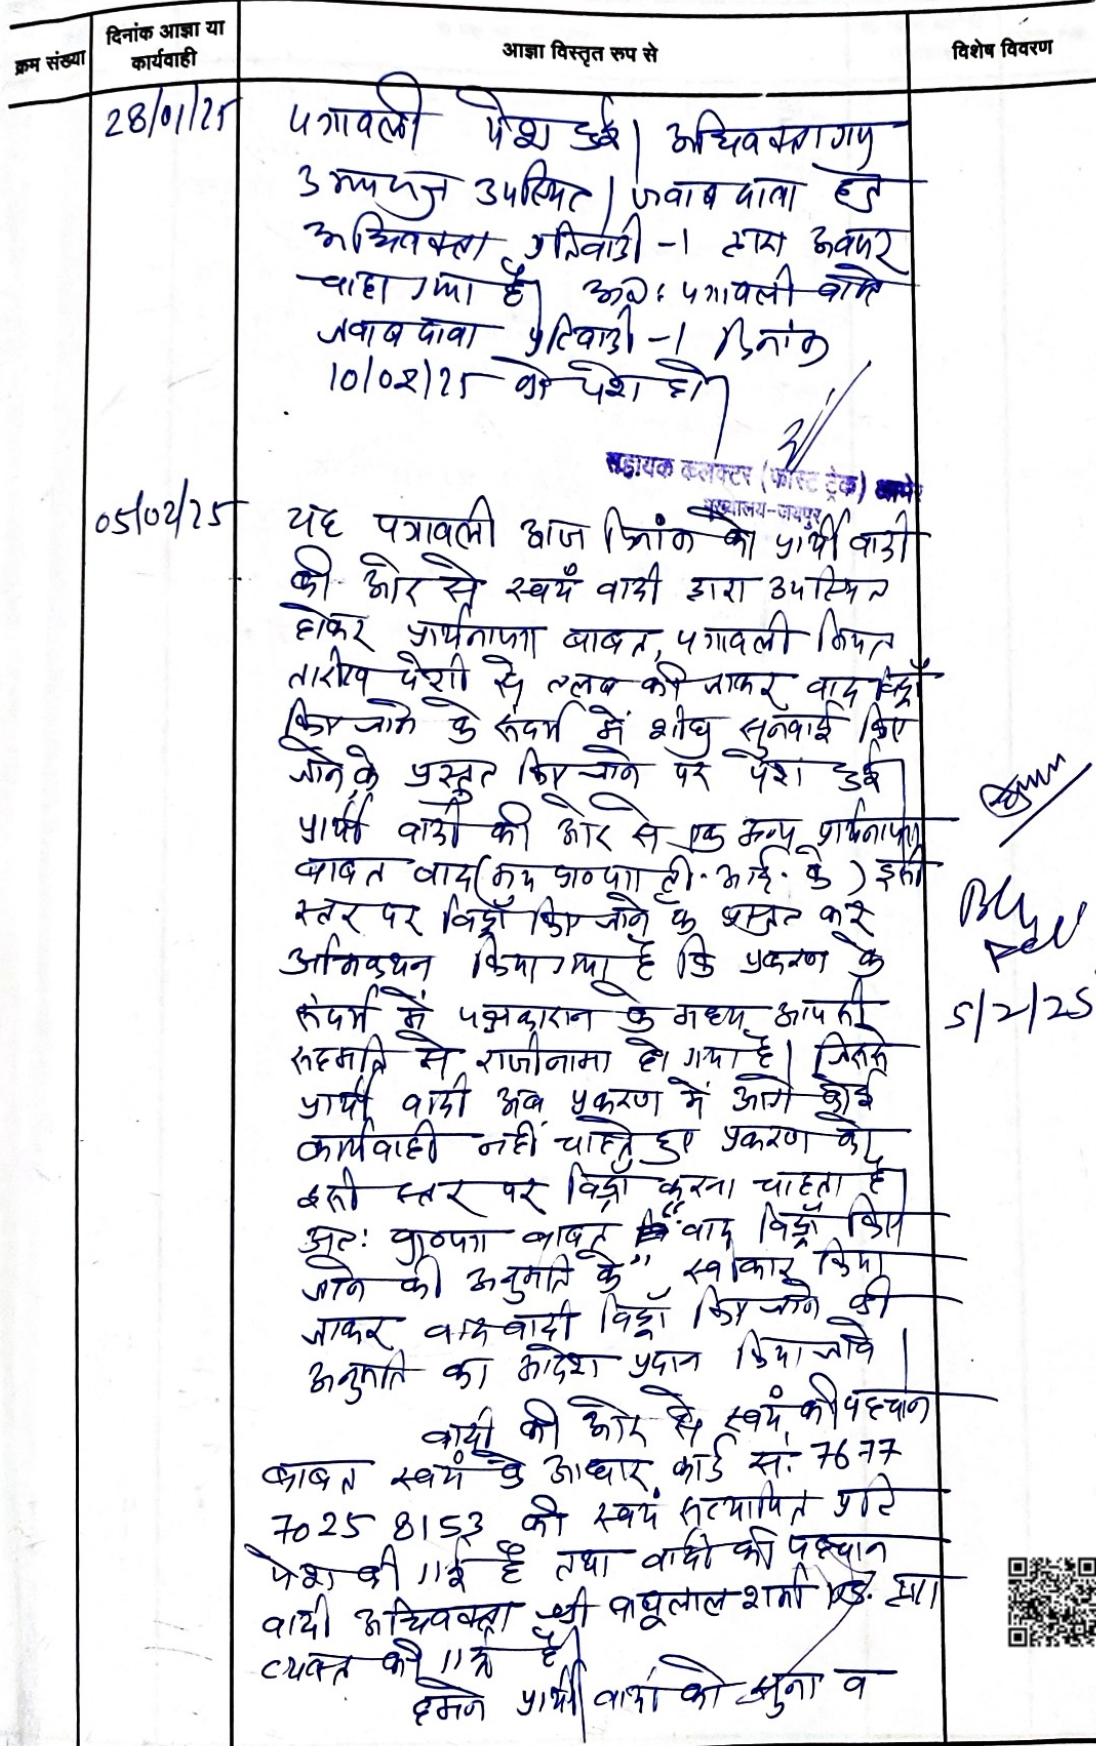 क्रम संख्या
दिनांक आज्ञा या
कार्यवाही
आज्ञा विस्तृत रुप से
विशेष विवरण
28/01/25
पत्रावली पेश हुई। अधिवक्तागण
उभयपक्ष उपस्थित। जवाब दावा हेतु
अधिवक्ता प्रतिवादी -1 द्वारा अवसर
चाहा गया है। अतः पत्रावली वास्ते
जवाब दावा प्रतिवादी -1 दिनांक
10/02/25 को पेश हो।
सहायक कलक्टर (फास्ट ट्रेक) आमेर
मुख्यालय-जयपुर
05/02/25
यह पत्रावली आज दिनांक को प्रार्थी वादी
की ओर से स्वयं वादी द्वारा उपस्थित
होकर प्रार्थनापत्र बाबत, पत्रावली नियत
तारीख पेशी से तलब की जाकर वाद विड्रॉ
किए जाने के संदर्भ में शीघ्र सुनवाई किए
जाने के प्रस्तुत किए जाने पर पेश हुई।
प्रार्थी वादी की ओर से एक अन्य प्रार्थनापत्र
बाबत वाद (मय प्रा०पत्र टी.आई. के) इसी
स्तर पर विड्रॉ किए जाने के प्रस्तुत कर
अभिकथन किया गया है कि प्रकरण के
संदर्भ में पक्षकारान के मध्य आपसी
सहमति से राजीनामा हो गया है। जिससे
प्रार्थी वादी अब प्रकरण में आगे कोई
कार्यवाही नहीं चाहते हुए प्रकरण को
इसी स्तर पर विड्रॉ करना चाहता है।
अतः प्रा०पत्र बाबत "वाद विड्रॉ किए
जाने की अनुमति के" स्वीकार किया
जाकर वाद वादी विड्रॉ किए जाने की
अनुमति का आदेश प्रदान किया जावे।
वादी की ओर से स्वयं की पहचान
बाबत स्वयं के आधार कार्ड सं. 7677
7025 8153 की स्वयं सत्यापित प्रति
पेश की गई है तथा वादी की पहचान
वादी अधिवक्ता श्री बाबूलाल शर्मा एड. द्वारा
व्यक्त की गई है।
हमने प्रार्थी वादी को सुना व
5/2/25